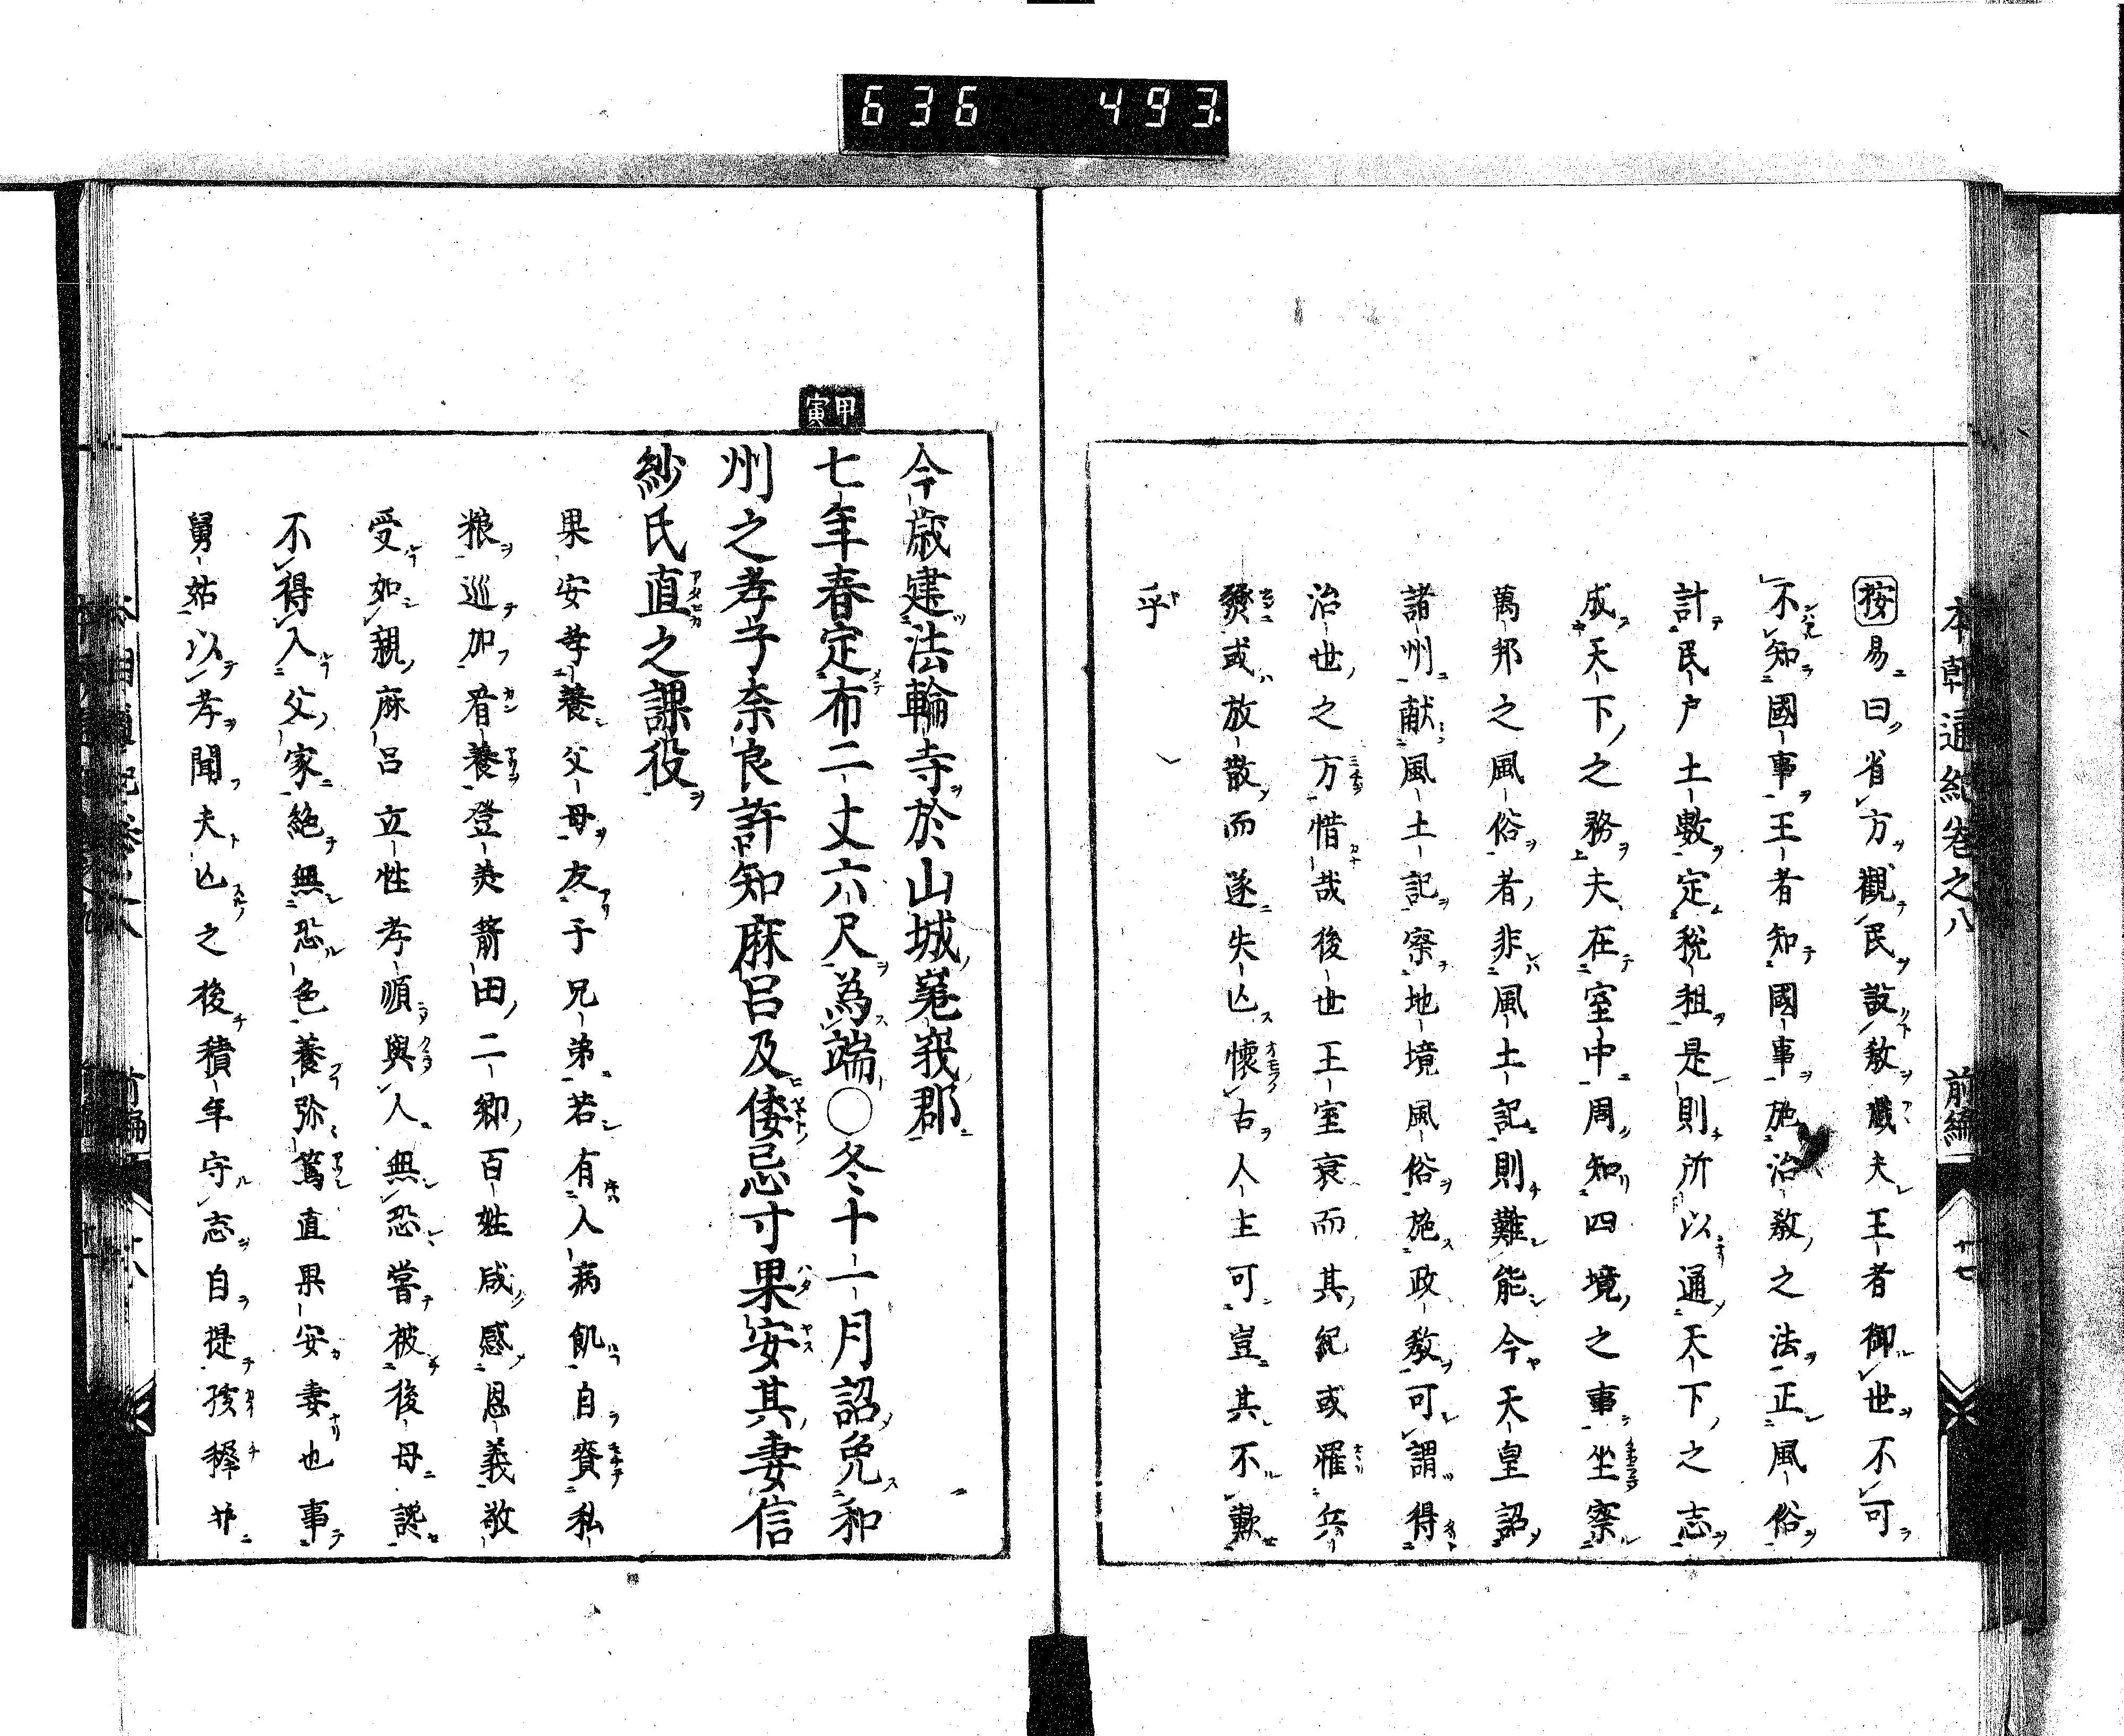 636 493
本朝通紀巻之八 前編 十七
按易曰省方觀民設敎蔵夫王者御世不可
不知國事王者知國事施治敎之法正風俗
計民戸土數定稅租是則所以通天下之志
成天下之務夫在室中周知四境之事坐察
萬邦之風俗者非風土記則難能今天皇詔
諸州献風土記察地境風俗施政敎可謂得
治世之方惜哉後世王室衰而其紀或罹兵
燹或放散而遂失亾懷古人主可豈其不歎
乎
今歳建法輪寺於山城嵬峩郡
甲寅
七年春定布二丈六尺為端〇冬十一月詔免和
州之孝子奈良許知麻呂及倭忌寸果安其妻信
紗氏直之課役
果安孝養父母友于兄弟若有人病飢自賫私
粮巡加看養登美箭田二鄉百姓咸感恩義敬
受如親麻呂立性孝順與人無恐嘗被後母讒
不得入父家絶無恐色養弥篤直果安妻也事
舅姑以孝聞夫亾之後積年守志自提孩穉并